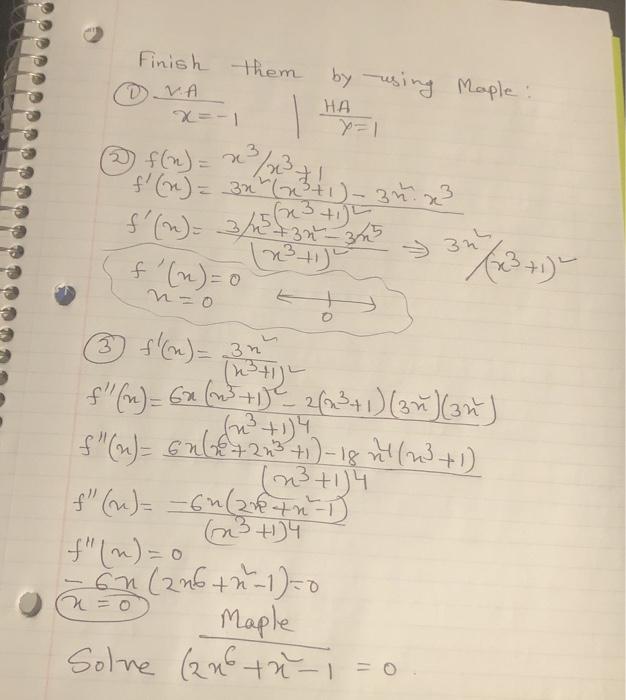 Finish them by using Maple:
① V.A | HA
x=-1 | y=1
② f(x) = x³/x³+1
f'(x) = 3x²(x³+1) - 3x². x³ / (x³+1)²
f'(x) = 3x⁵+3x²-3x⁵ / (x³+1)² ⇒ 3x²/(x³+1)²
f'(x)=0
x=0
0
③ f'(x) = 3x² / (x³+1)²
f''(x) = 6x(x³+1)² - 2(x³+1)(3x²)(3x²) / (x³+1)4
f''(x) = 6x(x⁶+2x³+1)-18x⁴(x³+1) / (x³+1)4
f''(x) = -6x(2x6+x²-1) / (x³+1)4
f''(x) = 0
- 6x (2x6+x²-1)=0
x=0
Maple
Solve (2x⁶+x²-1 = 0.